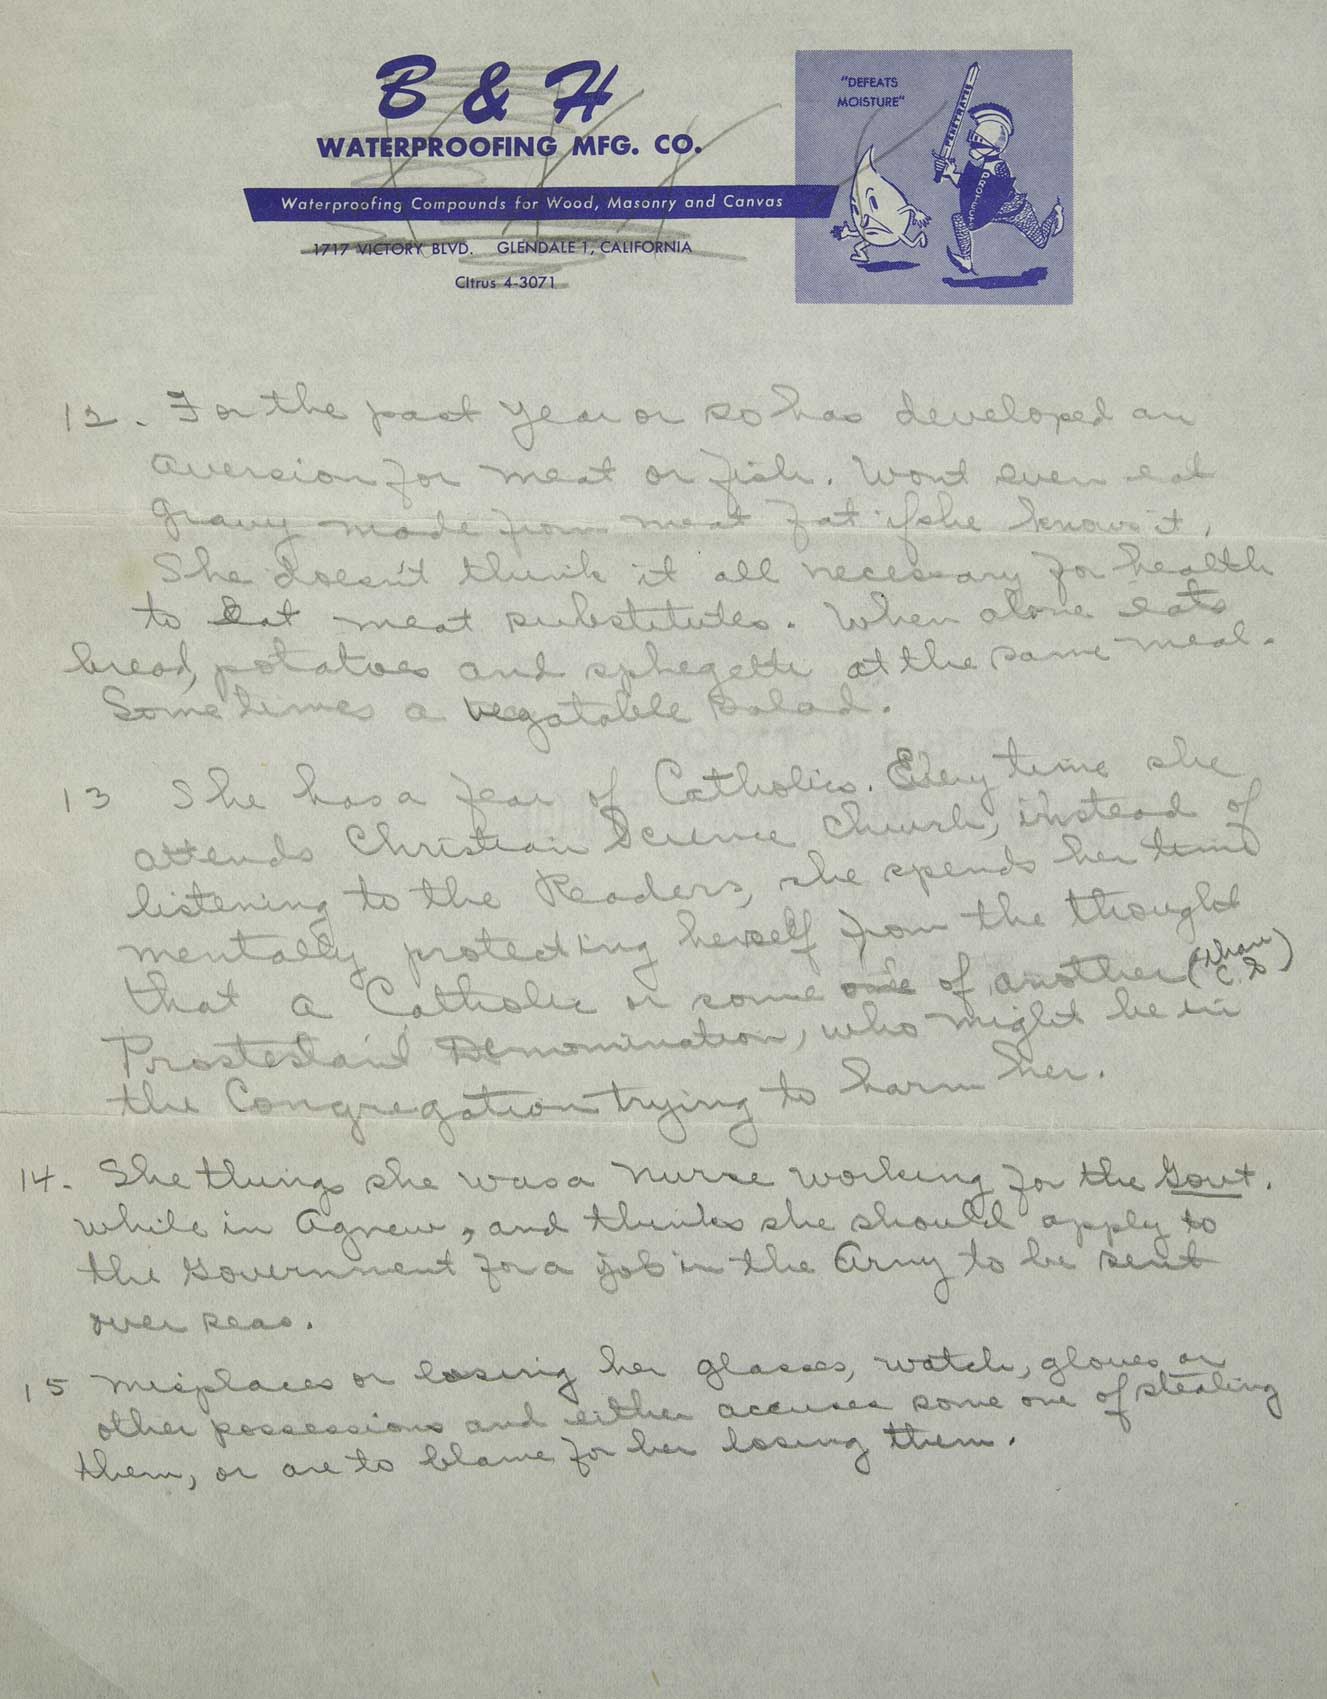 B & H
WATERPROOFING MFG. CO.
Waterproofing Compounds for Wood, Masonry and Canvas
1717 VICTORY BLVD. GLENDALE 1, CALIFORNIA
CItrus 4-3071
"DEFEATS
MOISTURE"
PENETRATES
12. For the past year or so has developed an
aversion for meat or fish. Wont even eat
gravy made from meat fat if she knows it.
She doesn't think it all necessary for health
to eat meat substitutes. When alone eats
bread, potatoes and sphegetti at the same meal.
Sometimes a vegatable salad.
13 She has a fear of Catholics. Every time she
attends Christian Science Church, instead of
listening to the Readers, she spends her time
mentally protecting herself from the thought
that a Catholic or some one of another (than
C.S)
Prostestant Denomination, who might be in
the Congregation trying to harm her.
14. She things she was a nurse working for the Govt.
while in Agnew, and thinks she should apply to
the Government for a job in the Army to be sent
over seas.
15 Misplaces or loosing her glasses, watch, gloves or
other possessions and either accuses some one of stealing
them, or are to blame for her losing them.